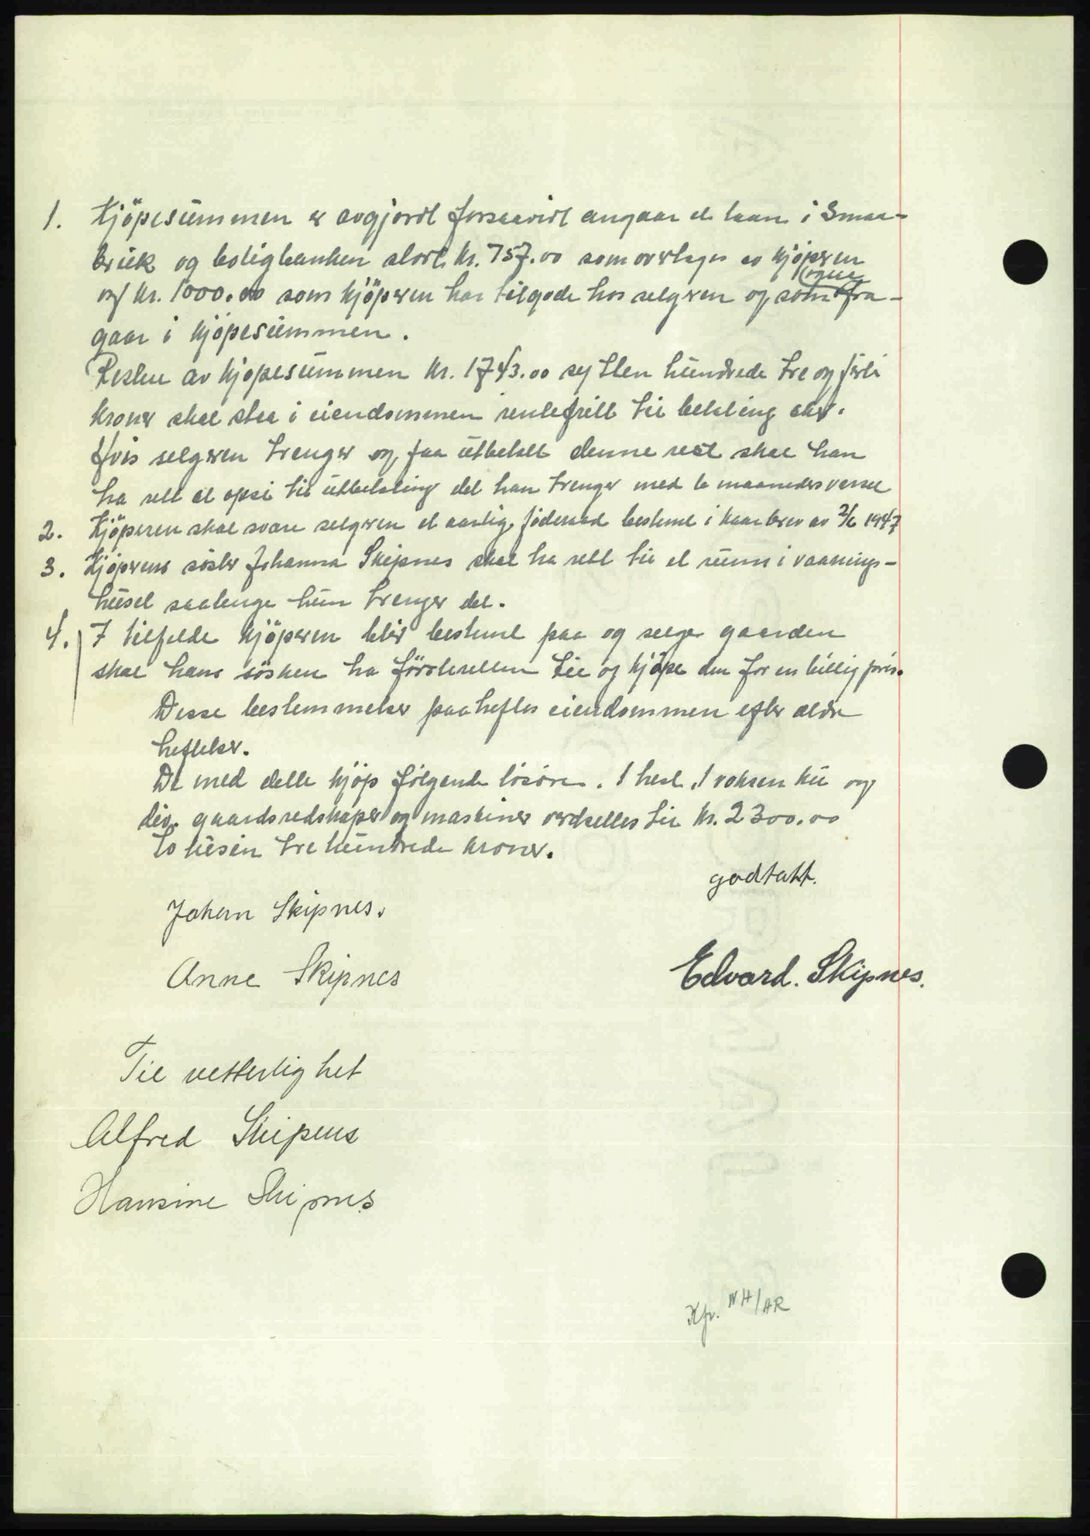 1. Kjöpesummen er avgjordt forsaavidt angaar et laan i Smaa-
bruk og boligbanken stort kr. 757.00 som overtages av kjöperen
og kr. 1000.00 som kjöperen har tilgode hos selgeren og som fra-
ogsaa
gaar i kjöpesummen.
Resten av kjöpesummen kr. 1743.00 sytten hundrede tre og förti
kroner skal staa i eiendommen rentefritt til betaling sker.
Hvis selgeren trenger og faa utbetalt denne rest skal han
ha rett at opsi til utbetaling det han trenger med to maaneders varsel
2. Kjöperen skal svare selgeren et aarlig föderaad bestemt i kaarbrev av 2/6 1947
3. Kjöperens söster Johanna Skipnes skal ha rett til et rum i vaanings-
huset saalenge hun trenger det.
4. I tilfelde kjöperen blir bestemt paa og selge gaarden
skal hans søsken ha førsteretten til og kjøpe den for en billig pris.
Disse bestemmelser paaheftes eiendommen efter eldre
heftelser.
De med dette kjöp følgende lösöre. 1 hest, 1 voksen ku og
div. gaardsredskaper og maskiner verdsettes til kr. 2300.00
to tusin tre hundrede kroner.
godtatt.
Johan Skipnes.
Anne Skipnes
Edvard. Skipnes.
Til vetterlighet
Alfred Skipnes
Hansine Skipnes
Kfr. NH/AR